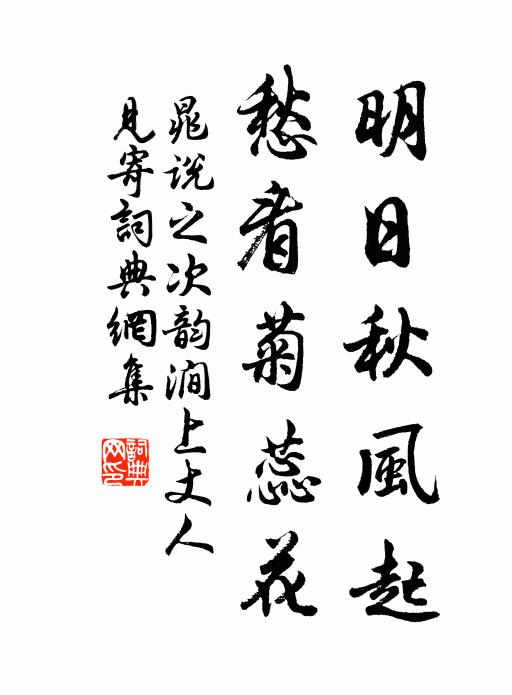 明日秋風起
愁看菊蕊花
晁説之次韵澗上丈人
見寄詞典網集
詞典網印